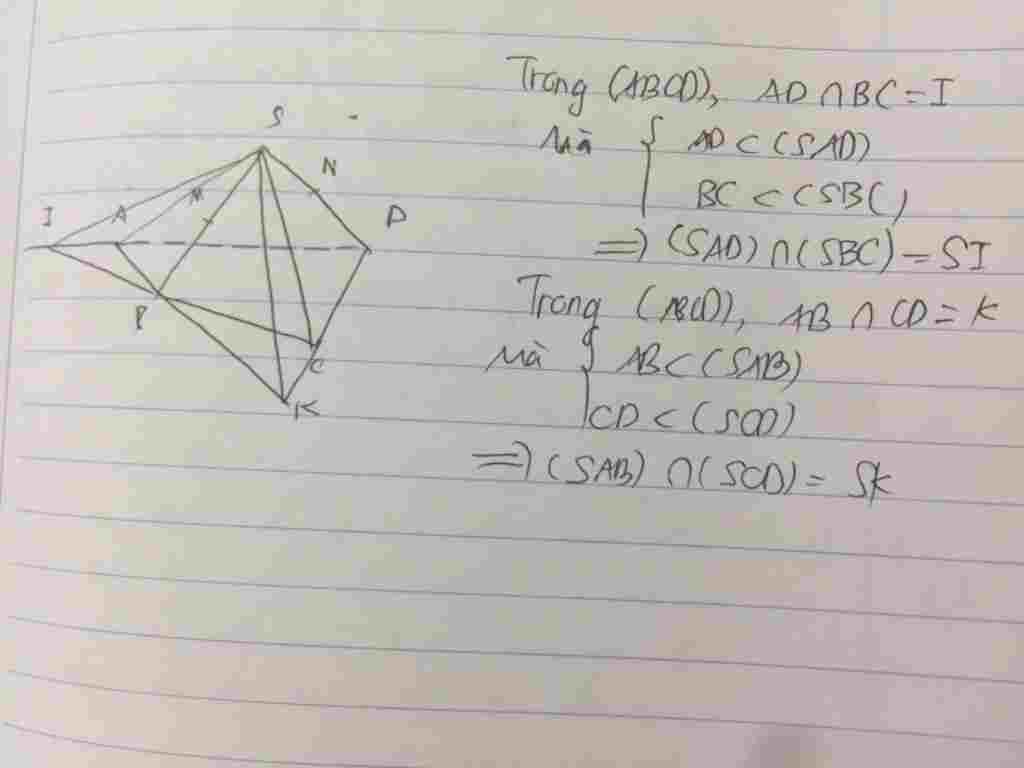 S
N
I A M D
B
C
K
Trong (ABCD), AD ∩ BC = I
Mà { AD ⊂ (SAD)
BC ⊂ (SBC)
=> (SAD) ∩ (SBC) = SI
Trong (ABCD), AB ∩ CD = K
Mà { AB ⊂ (SAB)
CD ⊂ (SCD)
=> (SAB) ∩ (SCD) = SK